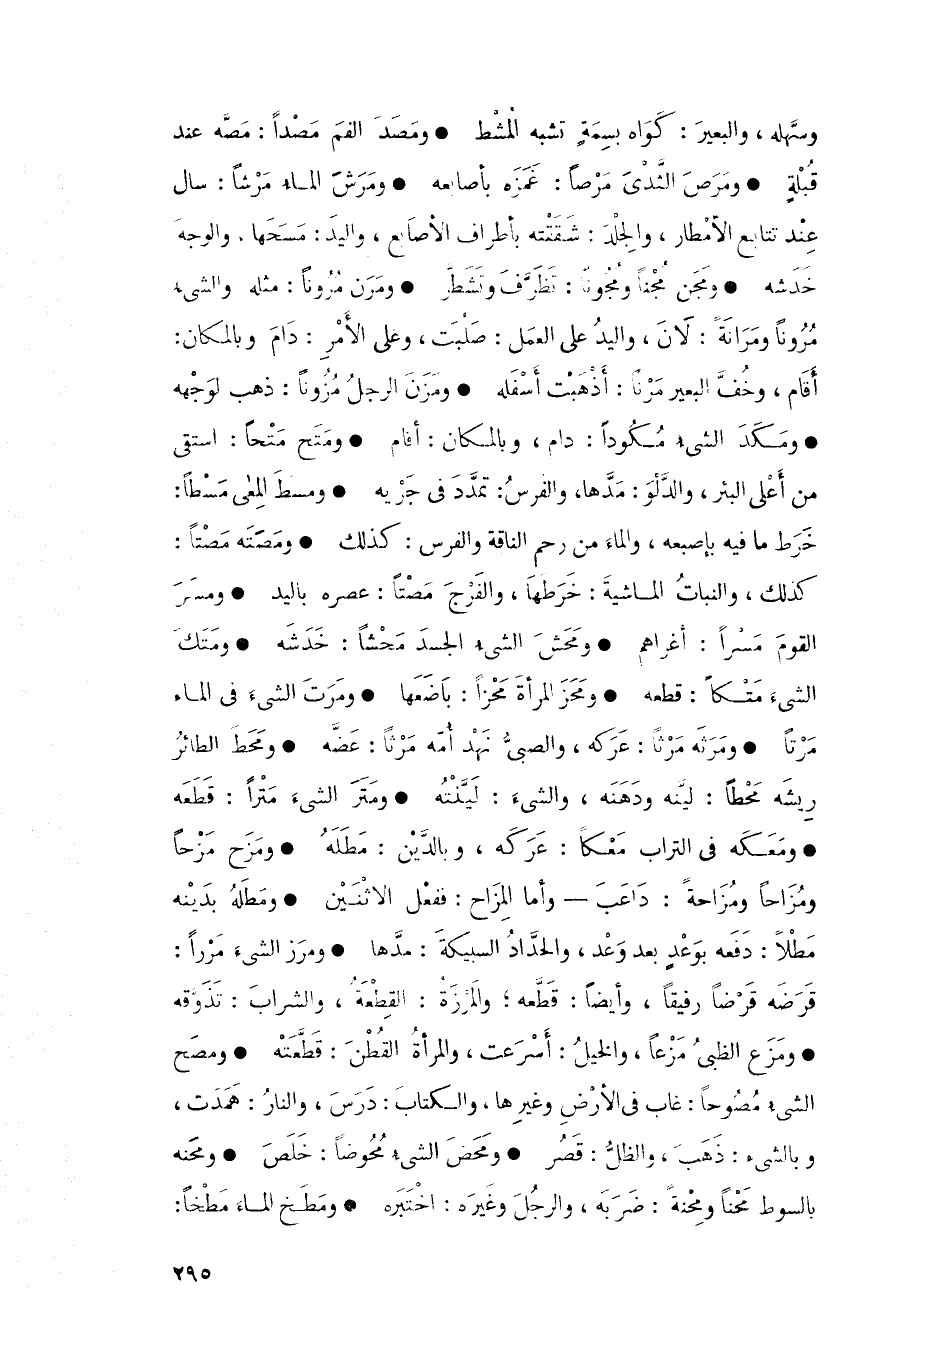 وسَّهله ، والبعيرَ : كَوَاه بِسِمَةٍ تشبه المُشْط ● ومَصَدَ الفمَ مَصْداً : مَصَّه عند
قُبْلةٍ ● ومَرَصَ الثَّدْىَ مَرْصاً : غَمَزَه بأصابعه ● ومَرَشَ المـاء مَرْشاً : سال
عِنْد تتابع الأمْطار ، والجِلْدَ : شَقَقْته بأطراف الأصَابع ، واليدَ : مَسَحَها . والوجهَ
خَدَشه ● ومَجَن مُجْناً ومُجُوناً : تَظَرَّف وتَشَطَّر ● ومَرَن مُرُوناً : مثله والشىء
مُرُوناً ومَرَانَةً : لَانَ ، واليدُ على العمَل : صَلُبَت ، وعلى الأَمْرِ : دَامَ وبالمـكان :
أَقَام ، وخُفَّ البعير مَرْناً : أَذْهَبْت أَسْفَله ● ومَزَنَ الرجلُ مُزُوناً : ذهب لوَجْهه
● ومَـكَدَ الشىء مُـكُوداً : دام ، وبالمـكان : أقام ● ومَتَح مَتْحاً : استقى
من أَعْلى البئر ، والدَّلْوَ : مَدَّها، والفرسُ : تمَدَّدَ فى جَرْيه ● ومسطَ المِعَى مَسْطاً :
خَرَط ما فيه بإصبعه ، والماءَ من رحم الناقة والفرس : كذلك ● ومَصَتَه مَصْتاً :
كذلك ، والنباتُ المـاشيةَ : خَرَطَهَا ، والفَرْجَ مَصْتاً : عصره باليد ● ومسَرَ
القومَ مَسْراً : أغراهم ● ومَحَشَ الشىء الجسدَ مَحْشاً : خَدَشَه ● ومَتَكَ
الشىءَ مَتْـكاً : قطعه ● ومَحَزَ المرأةَ مَحْزاً : بَاضَعَها ● ومَرَتَ الشىءَ فى المـاء
مَرْتاً ● ومَرَثَه مَرْثاً : عَرَكه ، والصبىُّ نَهْد أُمّه مَرْثاً : عَضَّه ● ومَحَطَ الطائرُ
رِيشَه مَحْطاً : ليَّنه ودَهَنَه ، والشىءَ : لَيَّنْتُه ● ومَتَرَ الشىءَ مَتْراً : قَطَعَه
● ومَعَـكَه فى التراب مَعْـكاً : عَرَكَه ، وبالدَّيْن : مَطَلَهُ ● ومَزَح مَزْحاً
ومُزَاحاً ومُزَاحةً : دَاعَبَ — وأما المِزَاح : ففعْل الاثْنَـيْن ● ومَطَلَهُ بدَيْنه
مَطْلاً : دَفَعه بوَعْدٍ بعد وَعْد ، والحَدَّادُ السبيكةَ : مدَّها ● ومرَز الشىءَ مَرْراً :
قَرَضَه قَرْضاً رفيقاً ، وأيضاً : قَطَّعه ؛ والمَرْزَةُ : القِطْعَةُ ، والشرابَ : تَذَوَّقه
● ومَزَع الظبىُ مَزْعاً ، والخيلُ : أَسْرَعت ، والمرأةُ القُطْنَ : قَطَّعَتْه ● ومصَح
الشىء مُصُوحاً : غاب فى الأرْضِ وغيرِها ، والـكتابَ : دَرَسَ ، والنارُ : هَمَدَت ،
وبالشىء : ذَهَبَ ، والظلُّ : قَصُر ● ومَحَضَ الشىء مُحُوضاً : خَلَصَ ● ومحَنه
بالسوط مَحْناً ومِحْنةً : ضَرَبَه ، والرجُلَ وغَيرَه : اخْتَبَره ● ومَطَـخ المـاء مَطْخاً :
٢٩٥